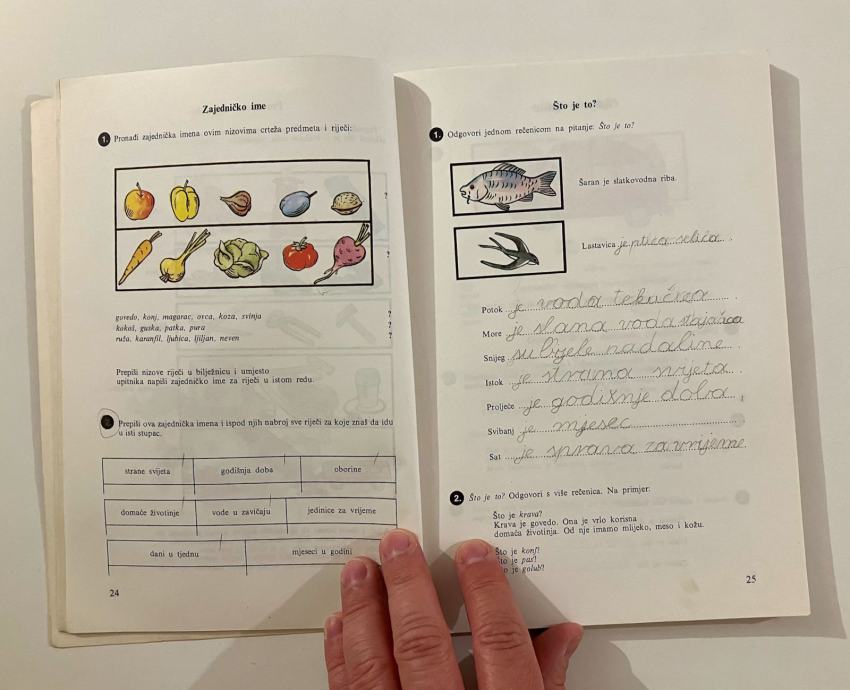 Zajedničko ime
1. Pronađi zajednička imena ovim nizovima crteža predmeta i riječi:
?
?
govedo, konj, magarac, ovca, koza, svinja ?
kokoš, guska, patka, pura ?
ruža, karanfil, ljubica, ljiljan, neven ?
Prepiši nizove riječi u bilježnicu i umjesto
upitnika napiši zajedničko ime za riječi u istom redu.
2. Prepiši ova zajednička imena i ispod njih nabroj sve riječi za koje znaš da idu
u isti stupac.
strane svijeta godišnja doba oborine
domaće životinje vode u zavičaju jedinice za vrijeme
dani u tjednu mjeseci u godini
24
Što je to?
1. Odgovori jednom rečenicom na pitanje: Što je to?
Šaran je slatkovodna riba.
Lastavica je ptica selica.
Potok je voda tekućica.
More je slana voda stajaćica
Snijeg su bijele padaline.
Istok je strana svijeta.
Proljeće je godišnje doba.
Svibanj je mjesec.
Sat je sprava za vrijeme
2. Što je to? Odgovori s više rečenica. Na primjer:
Što je krava?
Krava je govedo. Ona je vrlo korisna
domaća životinja. Od nje imamo mlijeko, meso i kožu.
Što je konj?
je pas?
je golub?
25